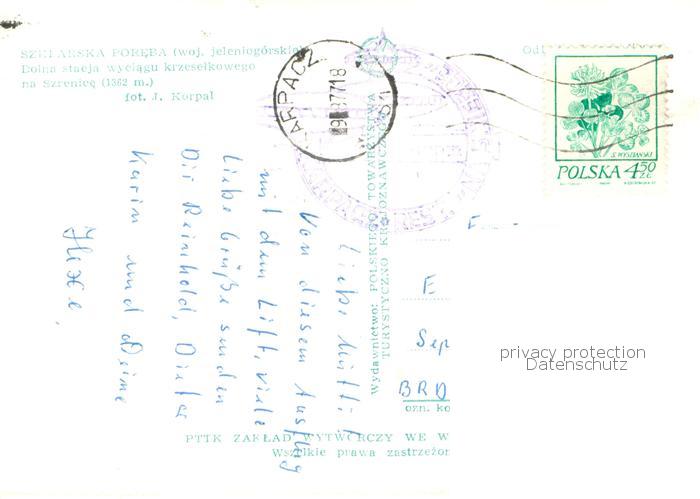 SZKLARSKA PORĘBA (woj. jeleniogórskie)
Dolna stacja wyciągu krzesełkowego
na Szrenicę (1362 m.)
fot. J. Korpal
Liebe Mutti!
Von diesem Ausflug
mit dem Lift, viele
liebe Grüße senden
Dir Reinhold, Dieter
Karin und Deine
Wydawnictwo: POLSKIEGO TOWARZYSTWA
TURYSTYCZNO KRAJOZNAWCZEGO
PTTK ZAKŁAD WYTWÓRCZY WE W
Wszelkie prawa zastrzeżon
ARPACZ
S. WYSPIAŃSKI
POLSKA 4 50 ZŁ
E
Sep
BRD
ozn. ko
privacy protection
Datenschutz